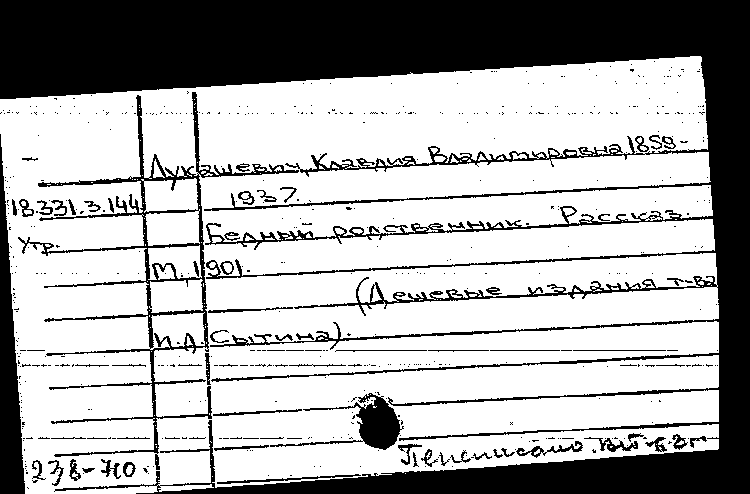 Лукашевич, Клавдия Владимировна, 1859-
18.331.3.144 1937.
Утр. Бедный родственник. Рассказ.
М., 1901.
(Дешевые издания т-ва
И.Д. Сытина).
238-70.
Переписано.